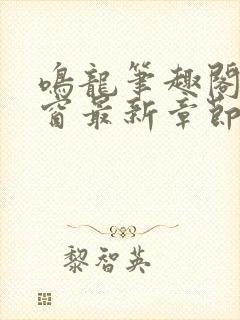 鳴龍筆趣閣
窗最新章節
黎智英